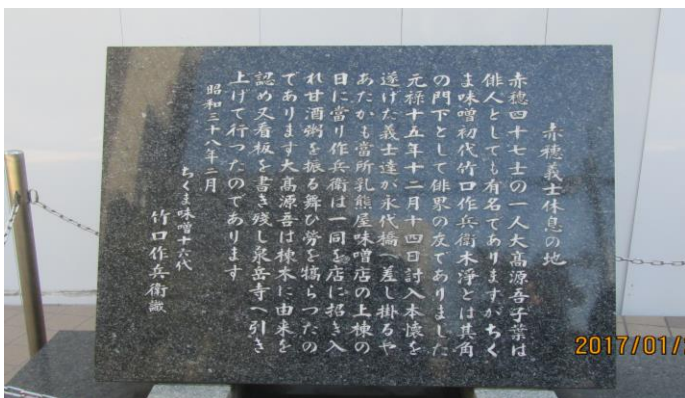 赤穂義士休息の地
赤穂四十七士の一人大高源吾子葉は
俳人としても有名でありますがちく
ま味噌初代竹口作兵衛木浄とは其角
の門下として俳界の友でありました
元禄十五年十二月十四日討入本懐を
遂げた義士達が永代橋へ差し掛るや
あたかも當所乳熊屋味噌店の上棟の
日に當り作兵衛は一同を店に招き入
れ甘酒粥を振る舞ひ労を犒らつたの
であります大高源吾は棟木に由来を
認め又看板を書き残し泉岳寺へ引き
上げて行つたのであります
昭和三十八年二月
ちくま味噌十六代
竹口作兵衛識
2017/01/2